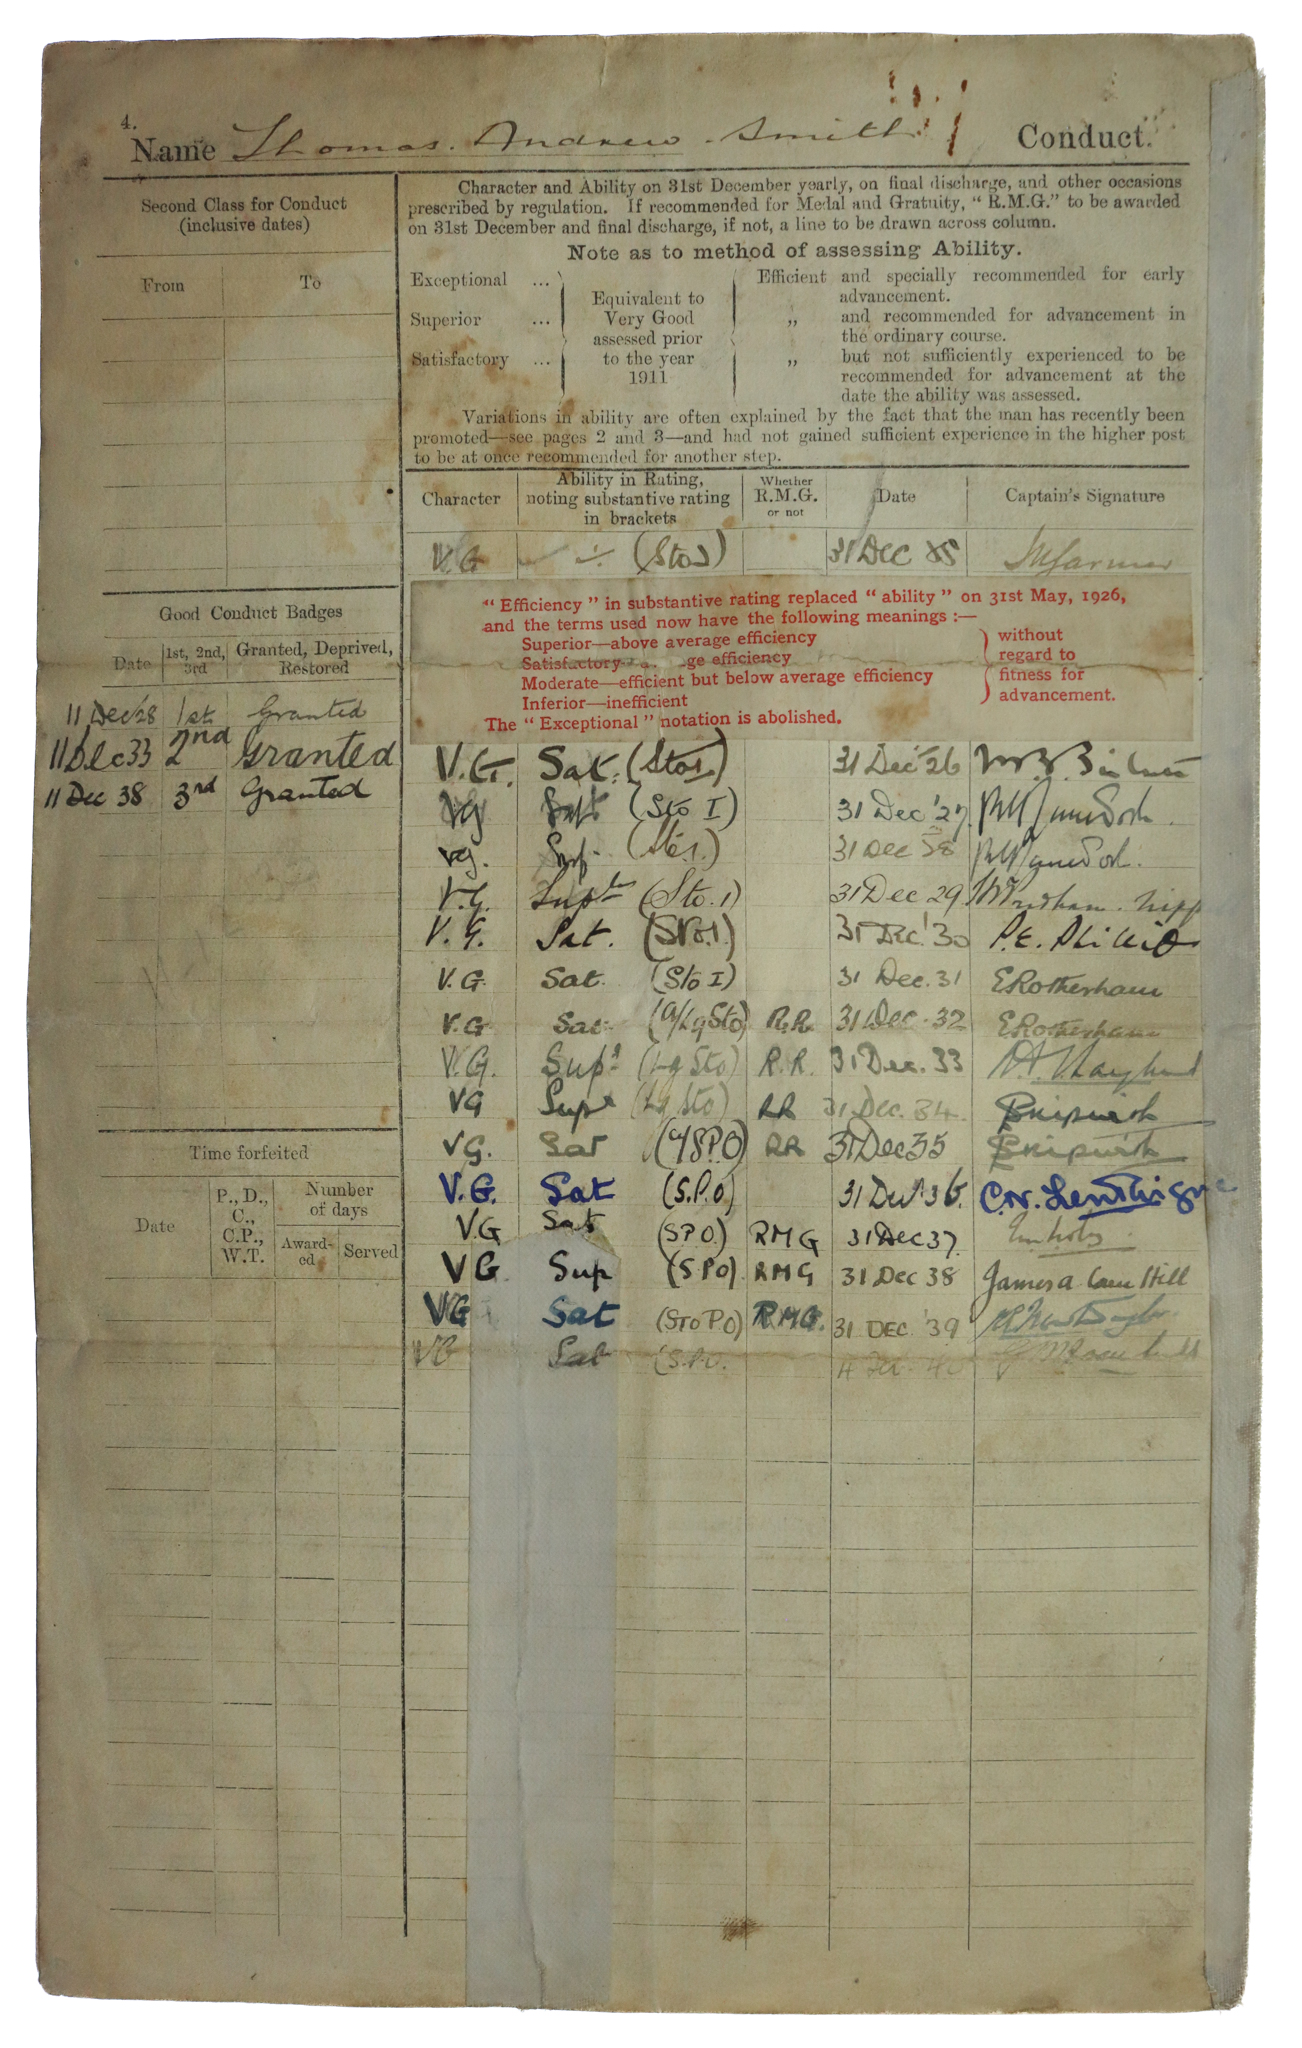 4.
Name Thomas. Andrew Smith Conduct.
Second Class for Conduct
(inclusive dates)
From To
Character and Ability on 31st December yearly, on final discharge, and other occasions
prescribed by regulation. If recommended for Medal and Gratuity, "R.M.G." to be awarded
on 31st December and final discharge, if not, a line to be drawn across column.
Note as to method of assessing Ability.
Exceptional ...
Superior ...
Satisfactory ...
Equivalent to
Very Good
assessed prior
to the year
1911
Efficient and specially recommended for early
advancement.
„ and recommended for advancement in
the ordinary course.
„ but not sufficiently experienced to be
recommended for advancement at the
date the ability was assessed.
Variations in ability are often explained by the fact that the man has recently been
promoted—see pages 2 and 3—and had not gained sufficient experience in the higher post
to be at once recommended for another step.
Character
Ability in Rating,
noting substantive rating
in brackets
Whether
R.M.G.
or not
Date
Captain's Signature
V.G (Sto2) 31 DEC
"Efficiency" in substantive rating replaced "ability" on 31st May, 1926,
and the terms used now have the following meanings :—
Superior—above average efficiency
Satisfactory- ge efficiency
Moderate—efficient but below average efficiency
Inferior—inefficient
without
regard to
fitness for
advancement.
The "Exceptional" notation is abolished.
Good Conduct Badges
Date
1st, 2nd,
3rd
Granted, Deprived,
Restored
11 Dec '28 1st Granted
11 Dec 33 2nd Granted
11 Dec 38 3rd Granted
V.G. Sat. (Sto1) 31 Dec '26
VG (Sto I) 31 Dec '27
VG. 31 Dec 28
V.G. Supr (Sto.1) 31 Dec 29
V.G. Sat. (Sto.1) 31 Dec. '30
V.G. Sat. (Sto I) 31 Dec. 31 E Rotherham
V.G Sat. (A/LgSto) R.R. 31 Dec. 32 E Rotherham
V.G. Supr (Lg Sto) R.R. 31 Dec. 33
VG Supr (Lg Sto) RR 31 Dec. 34 Skipwith
VG. Sat (A/S.P.O) RR 31 Dec 35 Skipwith
V.G. Sat (S.P.O) 31 Dec. 36.
V.G Sat (S.P.O.) RMG 31 Dec 37.
VG Sup (S.P.O) RMG 31 Dec 38 James A Hill
VG Sat (Sto PO) R.M.G. 31 DEC. '39
VG Sat (S.P.O.
Time forfeited
Date
P., D.,
C.,
C.P.,
W.T.
Number
of days
Award-
ed
Served